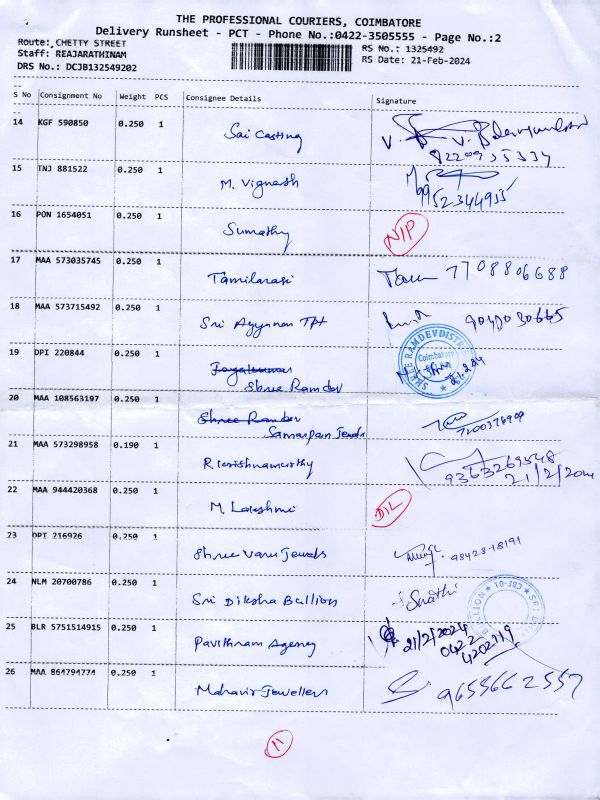 THE PROFESSIONAL COURIERS, COIMBATORE
Delivery Runsheet - PCT - Phone No.:0422-3505555 - Page No.:2
Route: CHETTY STREET
RS No.: 1325492
Staff: REAJARATHINAM
RS Date: 21-Feb-2024
DRS No.: DCJB132549202
S No Consignment No Weight PCS Consignee Details Signature
14 KGF 590850 0.250 1 Sai Casting
15 TNJ 881522 0.250 1 M. Vignesh
16 PON 1654051 0.250 1 Sumathy N/P
17 MAA 573035745 0.250 1 Tamilarasi 7708806688
18 MAA 573715492 0.250 1 Sri Ayyanar Tpt
19 DPI 220844 0.250 1 Jayakumar
Shree Ramdev
SHREE RAMDEV Coimbatore
20 MAA 108563197 0.250 1 Shree Ramdev
Samarpan Jewels 7200376909
21 MAA 573298958 0.190 1 R. Krishnamurthy 9363269548
21/2/2024
22 MAA 944420368 0.250 1 M. Lakshmi D/L
23 OPI 216926 0.250 1 Shree Varu Jewels 98428-18191
24 NLM 20700786 0.250 1 Sri Diksha Bullion Swathi
CBE-01
25 BLR 5751514915 0.250 1 Pavithram Agency 21/2/2024
0422
4202119
26 MAA 864794774 0.250 1 Mahavir Jewellers 9655662557
11